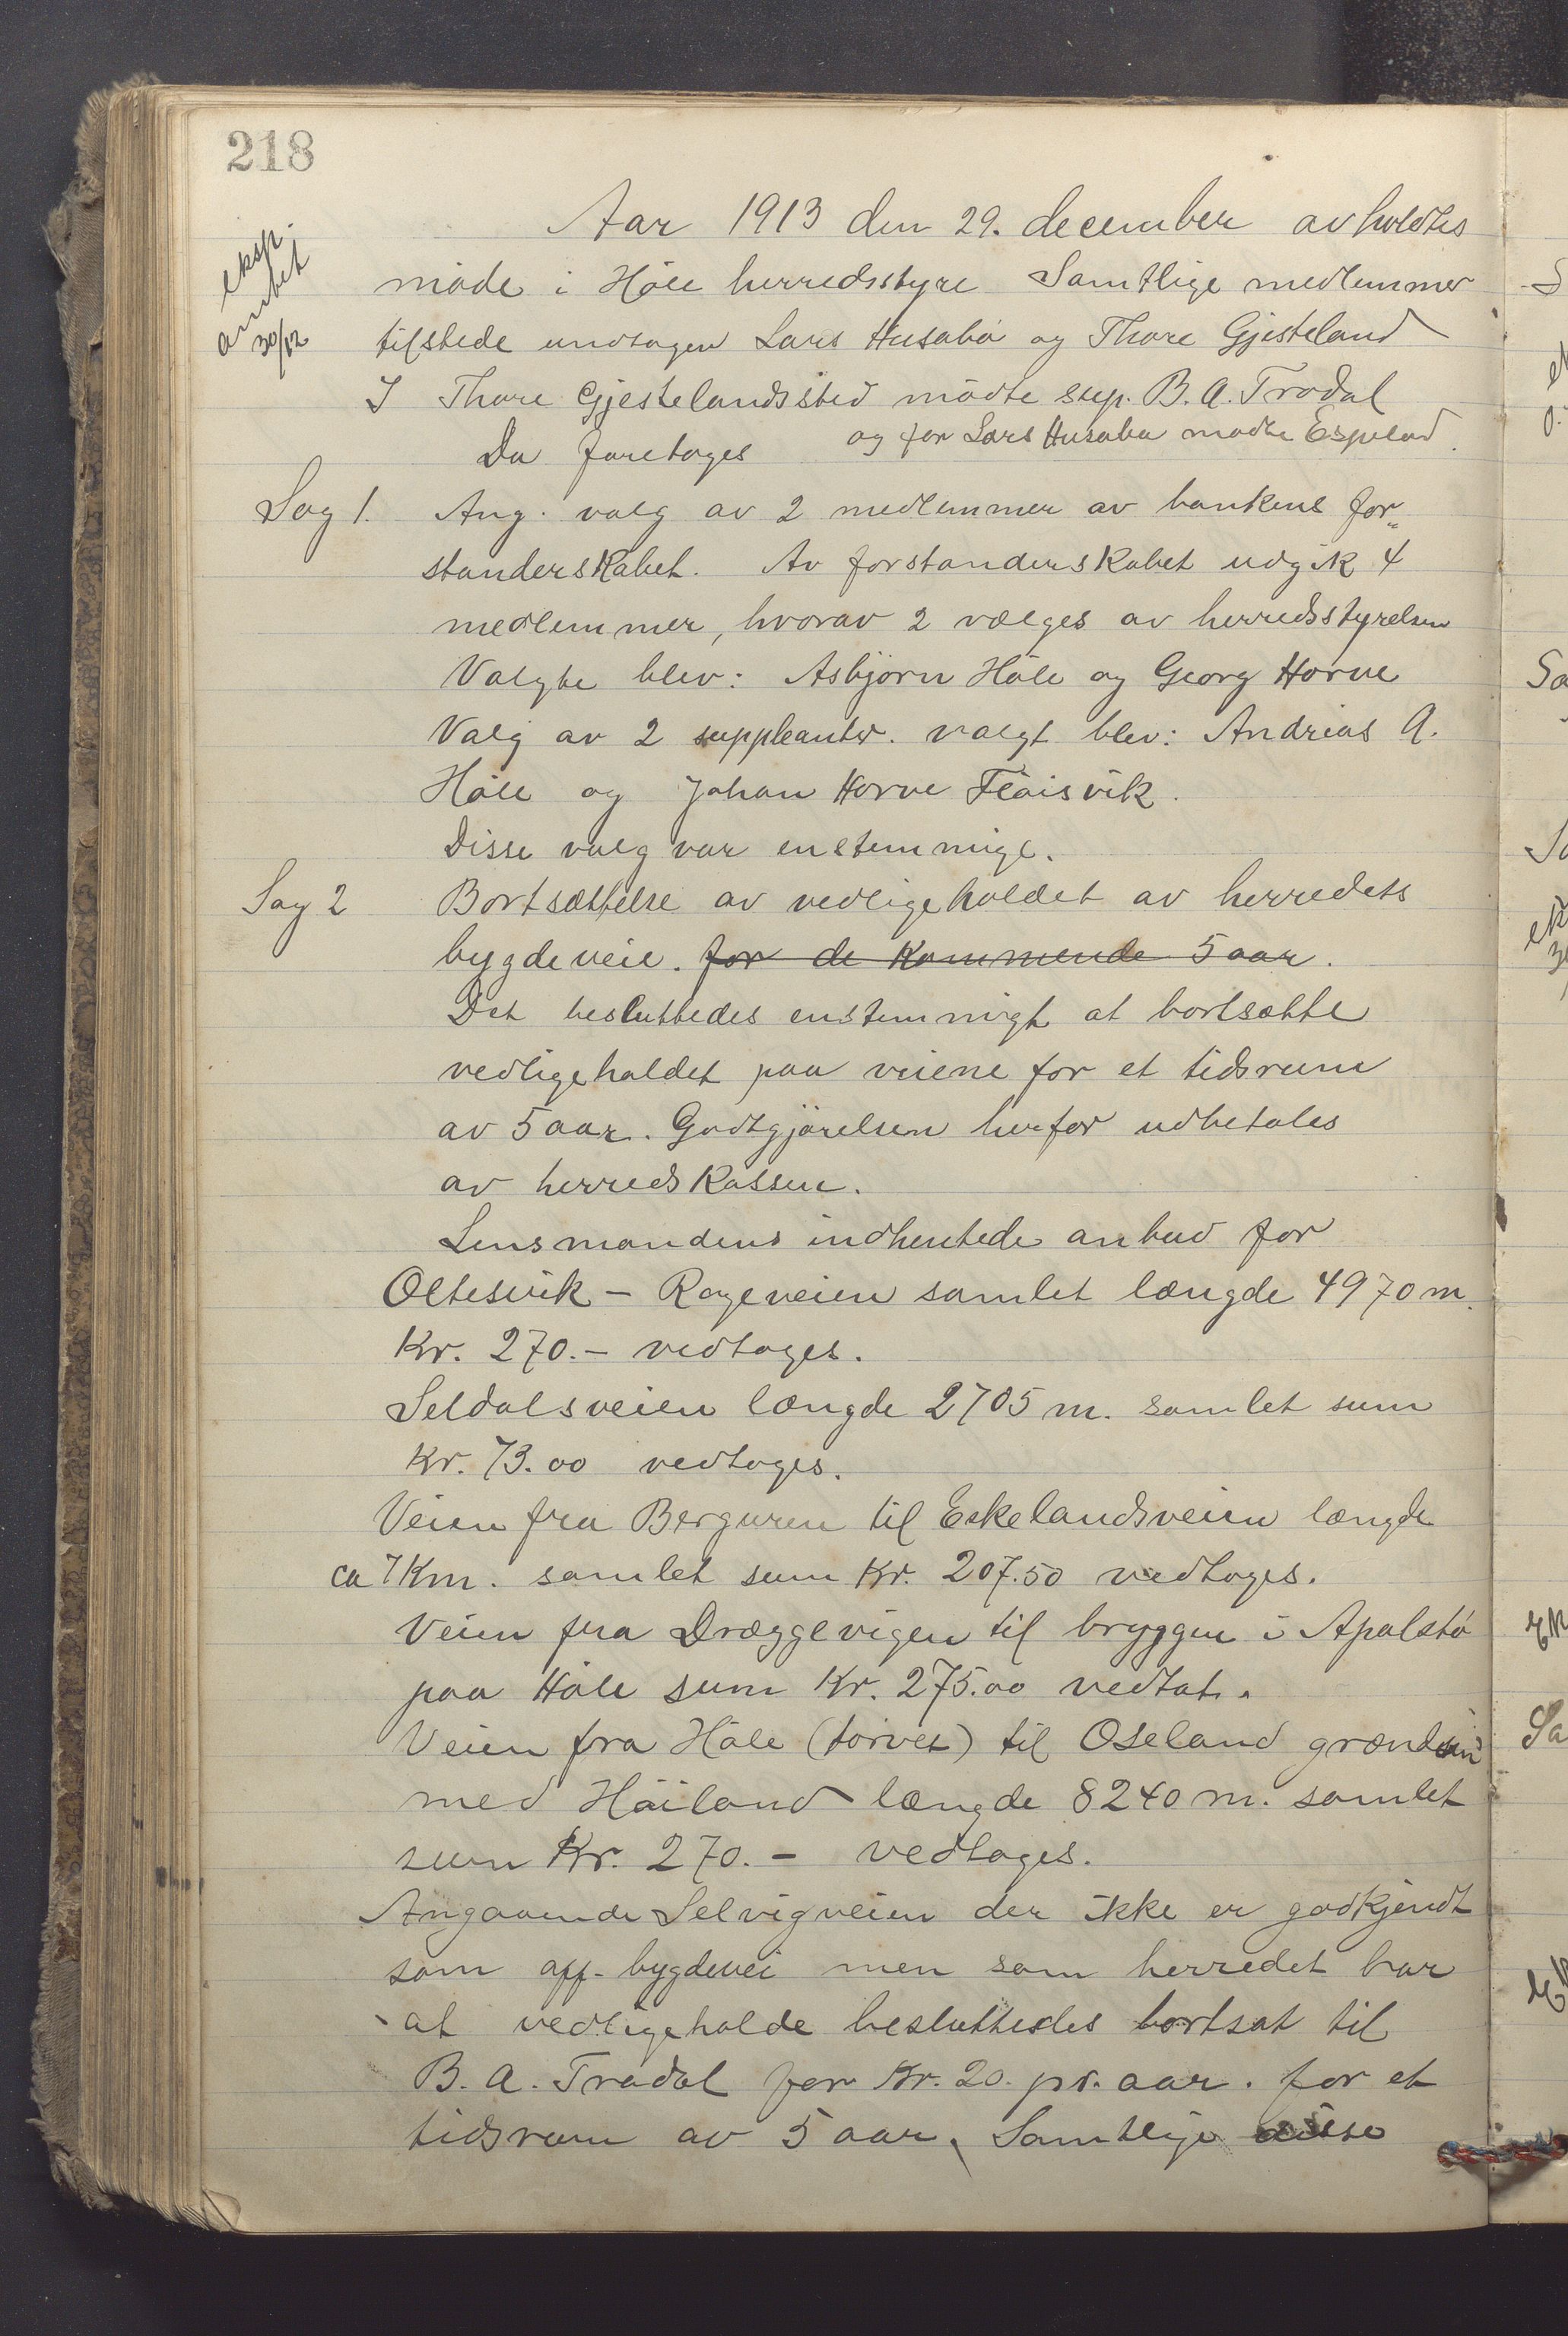 218
eksp.
amtet
30/12
Aar 1913 den 29. december avholdtes
møde i Høle herredsstyre Samtlige medlemmer
tilstede undtagen Lars Husabø og Thore Gjesteland
I Thore Gjestelandssted mødte sup. B. A. Trodal
og for Lars Husabø mødte Espeland.
Da foretoges
Sag 1. Ang. valg av 2 medlemmer av bankens for-
standerskabet. Av forstanderskabet udgik 4
medlemmer, hvorav 2 vælges av herredsstyrelsen
Valgte blev: Asbjørn Høle og Georg Horve
Valg av 2 suppleanter. valgt blev: Andreas A.
Høle og Johan Horve Fløisvik.
Disse valg var enstemmige.
Sag 2 Bortsættelse av vedligeholdet av herredets
bygdeveie. for de kommende 5 aar.
Det besluttedes enstemmigt at bortsætte
vedligeholdet paa veiene for et tidsrum
av 5 aar. Godtgjørelsen herfor udbetales
av herredskassen.
Lensmandens indhentede anbud for
Oltesvik – Rageveien samlet længde 4970 m.
Kr. 270.– vedtoges.
Seldalsveien længde 2705 m. samlet sum
Kr. 73.00 vedtoges.
Veien fra Berguren til Eskelandsveien længde
ca 7 Km. samlet sum Kr. 207.50 vedtoges.
Veien fra Dræggevigen til bryggen i Apalstø
paa Høle sum Kr. 275.00 vedtat.
Veien fra Høle (torvet) til Oseland grændsen
med Høiland længde 8240 m. samlet
sum Kr. 270.– vedtoges.
Angaaende Selvigveien der ikke er godkjendt
som off. bygdevei men som herredet har
at vedligeholde besluttedes bortsat til
B. A. Trodal for Kr. 20. pr. aar. for et
tidsrum av 5 aar. Samtlige disse